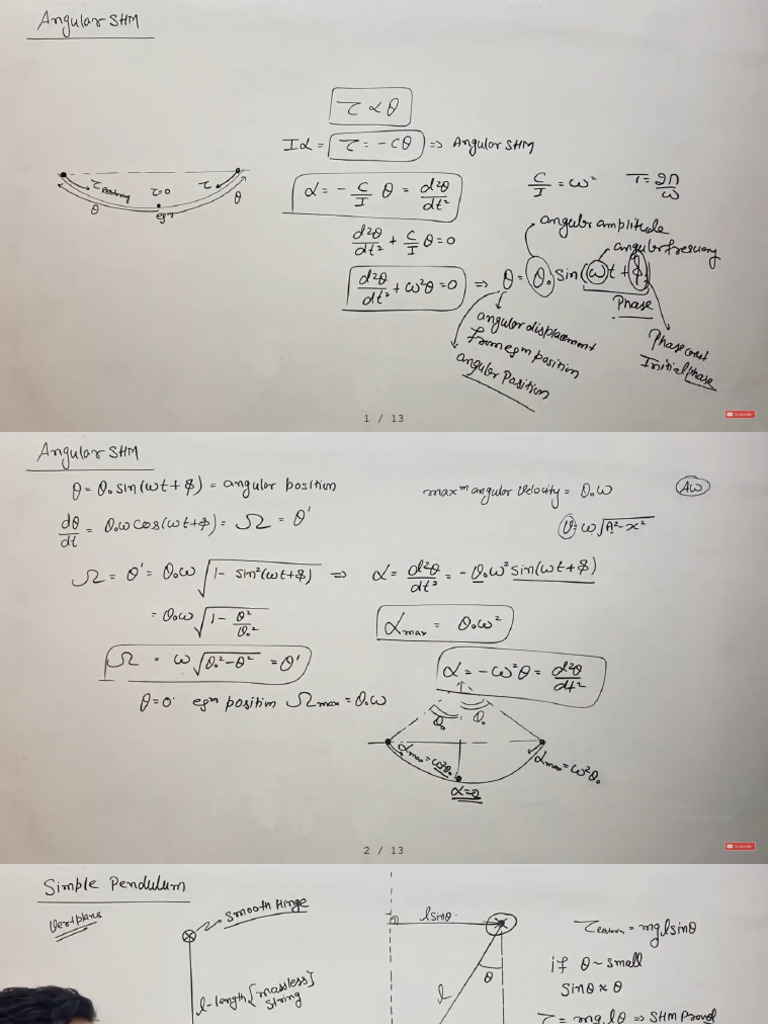 Angular SHM
τ ∝ θ
Iα = τ = -Cθ ⇒ Angular SHM
τ restoring
τ=0
τ
θ
eqⁿ
θ
α = - C/I θ = d²θ/dt²
C/I = ω² T = 2Π/ω
d²θ/dt² + C/I θ = 0
angular amplitude
angular frequency
d²θ/dt² + ω²θ = 0 ⇒ θ = θ₀ Sin(ωt + φ)
Phase
angular displacement
from eqⁿ position
angular Position
Phase const
Initial phase
1 / 13
Subscribe
Angular SHM
θ = θ₀ sin(ωt + φ) = angular position
maxᵐ angular velocity = θ₀ω
Aω
dθ/dt = θ₀ω cos(ωt + φ) = Ω = θ'
v = ω√A² - x²
Ω = θ' = θ₀ω √1 - sin²(ωt + φ) ⇒ α = d²θ/dt² = -θ₀ω² sin(ωt + φ)
= θ₀ω √1 - θ²/θ₀²
α max = θ₀ω²
Ω = ω√θ₀² - θ² = θ'
α = -ω²θ = d²θ/dt²
θ = 0 eqⁿ position Ω max = θ₀ω
θ₀ θ₀
α max = ω²θ₀
α max = ω²θ₀
α = 0
2 / 13
Subscribe
Simple Pendulum
Vert plane
Smooth Hinge
l-length {massless}
string
l sinθ
θ
l
τ restoring = mg l sinθ
if θ ~ small
Sinθ ≈ θ
τ = mg l θ ⇒ SHM Proved